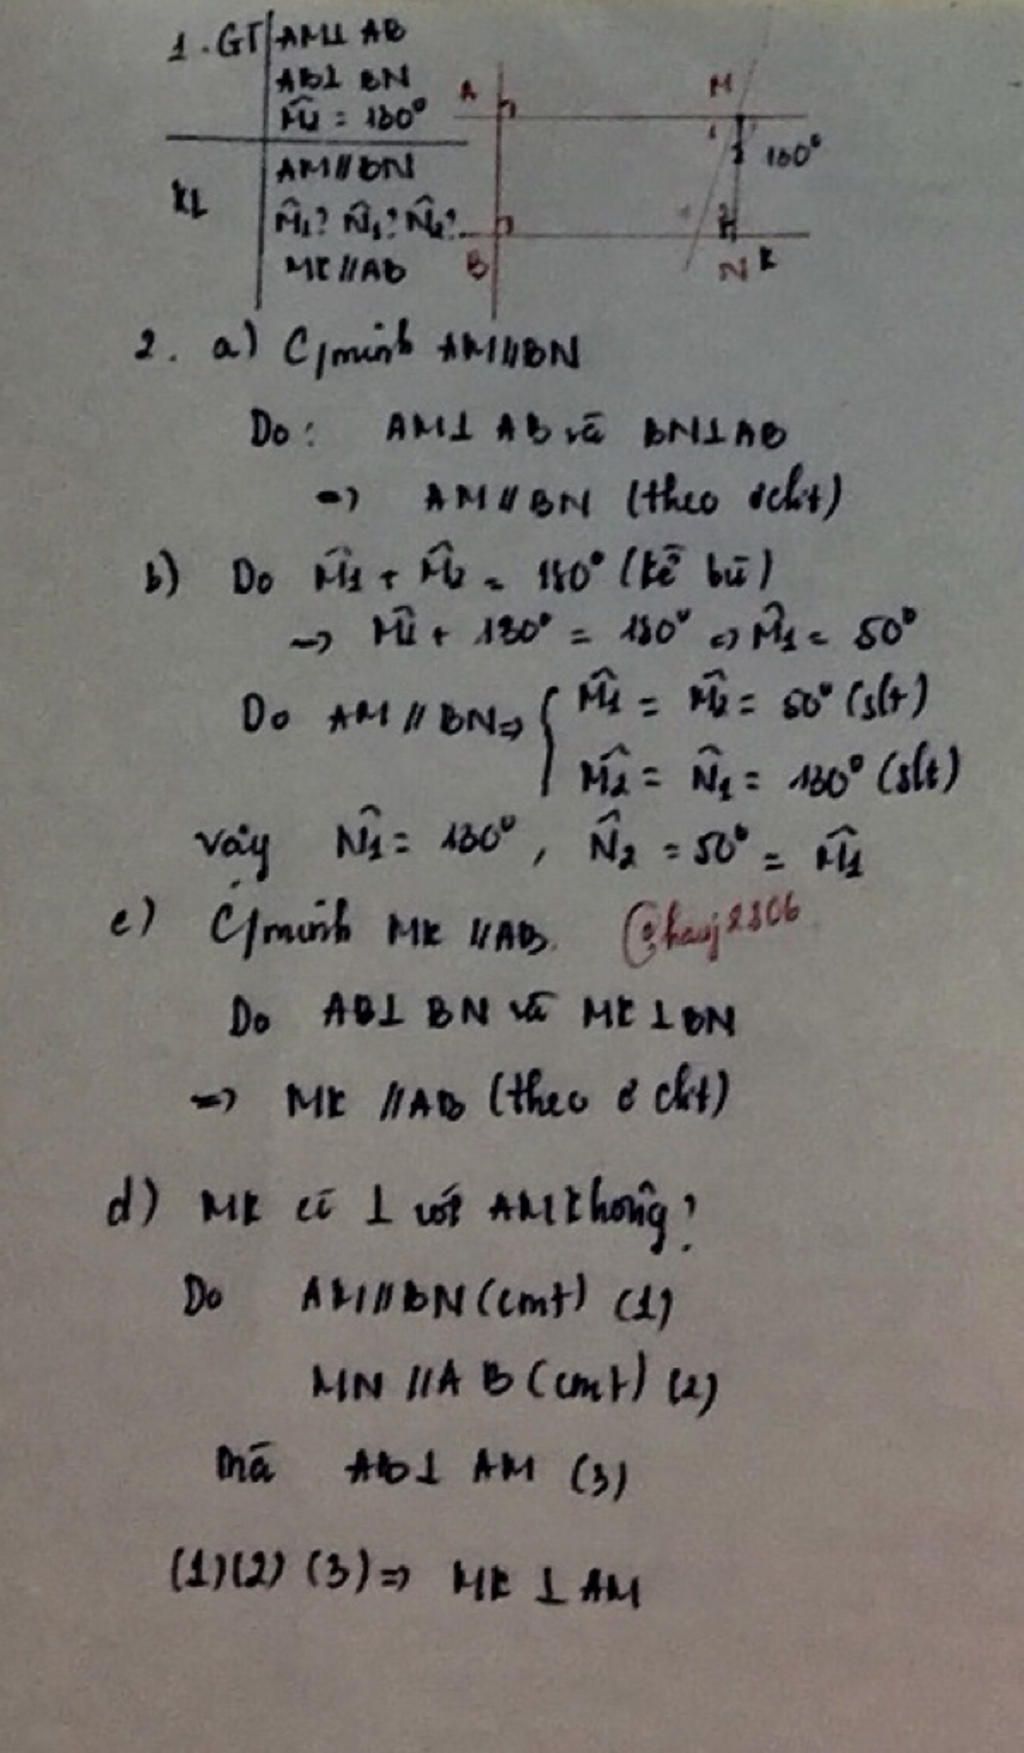 1. GT AM⊥ AB
AB⊥ BN
= 130°
KL
AM//BN
M̂1? N̂1? N̂2?
MK//AB
A
M
1
130°
B
N K
2. a) C/minh AM//BN
Do: AM⊥ AB và BN⊥AB
=> AM//BN (theo
b) Do M̂1 + M̂2 = 180° (kề bù)
=> M̂1 + 130° = 180° => M̂1 = 50°
Do AM // BN => M̂1 = = 50° (slt)
M̂2 = N̂1 = 130° (slt)
Vậy N̂1 = 130°, N̂2 = 50° = M̂1
c) C/minh MK //AB. 
Do AB⊥ BN và MK ⊥BN
=> MK //AB (theo
d) MK có ⊥ với AM không?
Do AM//BN (cmt) (1)
MN //AB (cmt) (2)
mà AB⊥ AM (3)
(1)(2) (3) => MK ⊥ AM